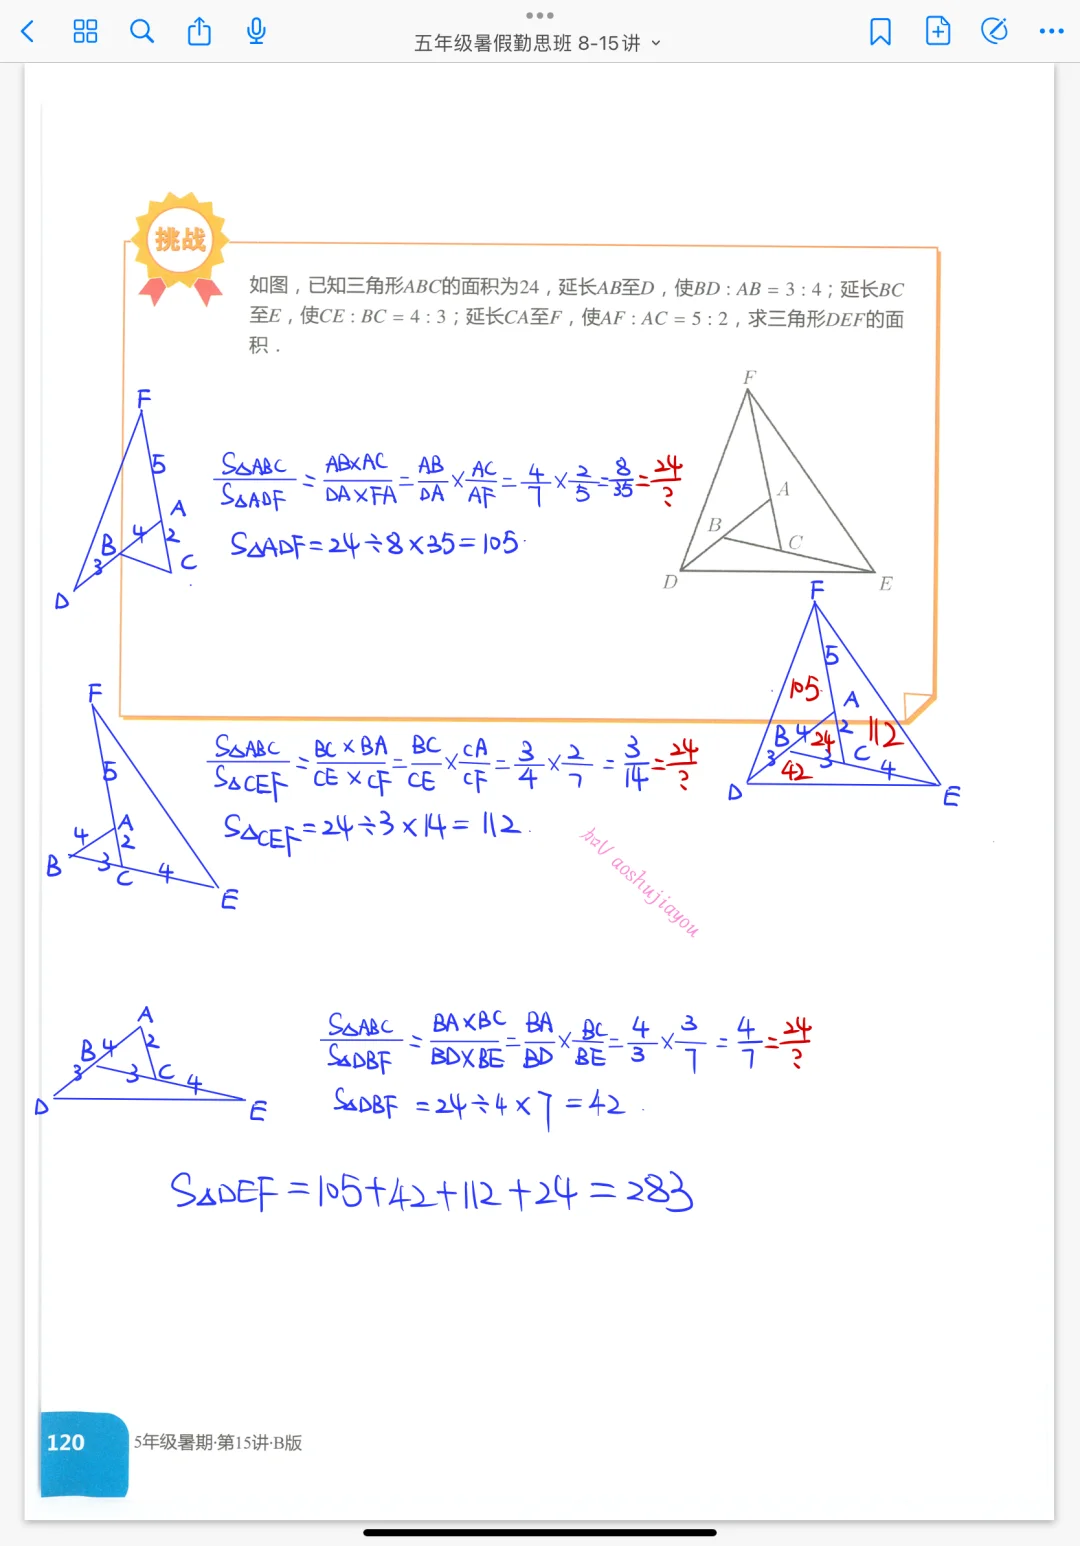 五年级暑假勤思班 8-15讲
挑战
如图，已知三角形ABC的面积为24，延长AB至D，使BD : AB = 3 : 4；延长BC
至E，使CE : BC = 4 : 3；延长CA至F，使AF : AC = 5 : 2，求三角形DEF的面
积．
F
A
B
C
D
E
F
5
A
4
2
B
C
3
D
S△ABC/S△ADF = AB×AC/DA×FA = AB/DA × AC/AF = 4/7 × 2/5 = 8/35 = 24/?
S△ADF = 24÷8×35 = 105
F
5
105
A
B 4 2
24 C 112
3 42 3 4
D
E
F
5
A
4 2
B 3 C 4
E
S△ABC/S△CEF = BC×BA/CE×CF = BC/CE × CA/CF = 3/4 × 2/7 = 3/14 = 24/?
S△CEF = 24÷3×14 = 112
aoshujiayou
A
B 4 2
3 3 C 4
D
E
S△ABC/S△DBF = BA×BC/BD×BE = BA/BD × BC/BE = 4/3 × 3/7 = 4/7 = 24/?
S△DBF = 24÷4×7 = 42
S△DEF = 105+42+112+24 = 283
120
5年级暑期·第15讲·B版